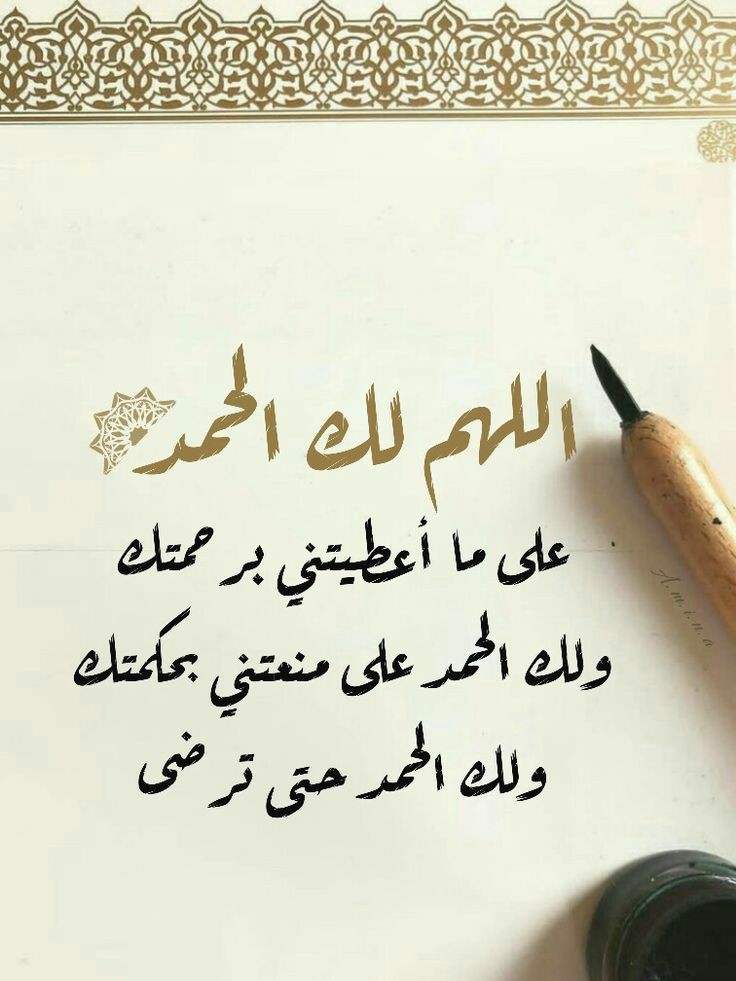 اللهم لك الحمد
على ما أعطيتني برحمتك
ولك الحمد على منعتني بحكمتك
ولك الحمد حتى ترضى
A.m.i.n.a